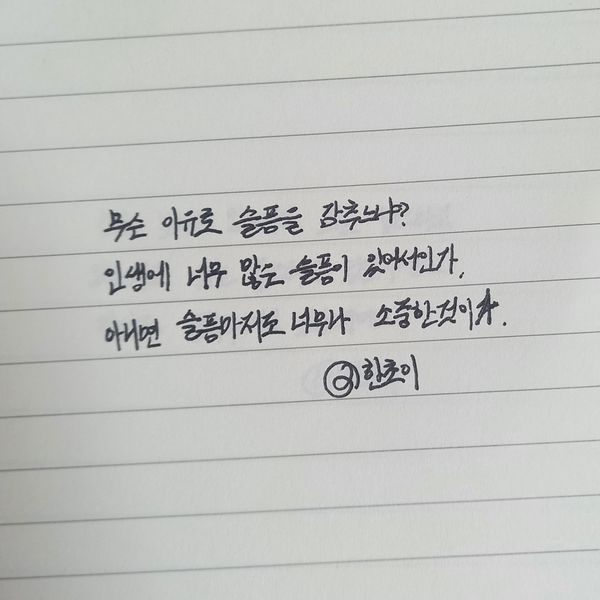 무슨 이유로 슬픔을 감추느냐?
인생에 너무 많은 슬픔이 있어서인가,
아니면 슬픔마저도 너무나 소중한것이
@한초이